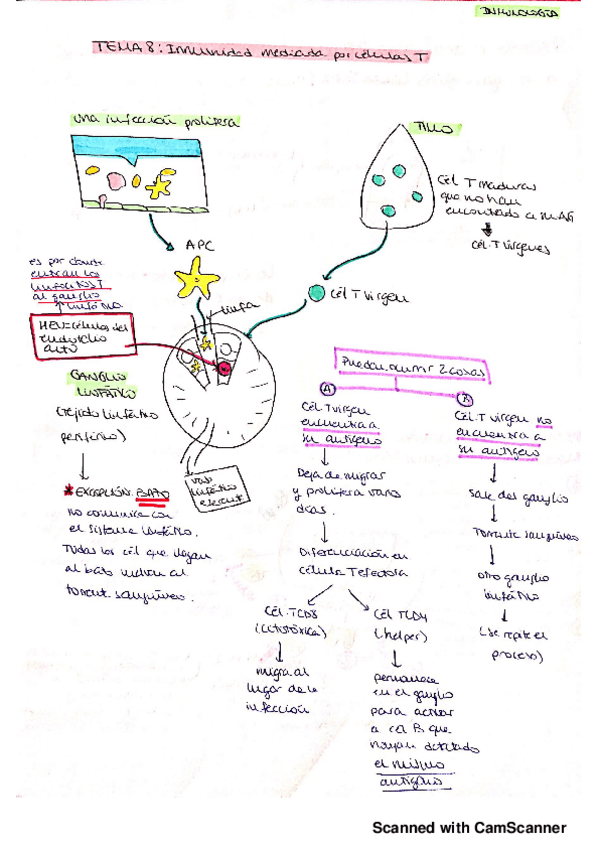 INMUNOLOGÍA
TEMA 8: Inmunidad mediada por células T
Una infección prolifera
TIMO
Cél T maduras
que no han
encontado a su AG
Cél. T vírgenes
APC
Cél T virgen
linfa
es por donde
entran los
linfocitos T
al ganglio
linfático
HEV=células del
endotelio
alto
GANGLIO
LINFÁTICO
(tejido linfático
periférico)
* EXCEPCIÓN: BAZO
no comunica con
el sistema linfático.
Todas las cél que llegan
al bazo vuelven al
torrent. sanguíneo.
vaso
linfático
eferent.
Pueden ocurrir 2 cosas
A
Cél T virgen
encuentra a
su antígeno
Deja de migrar
y prolifera varios
días.
Diferenciación en
célula T efectora
Cél. TCD8
(citotóxica)
migra al
lugar de la
infección
Cél TCD4
(helper)
permanece
en el ganglio
para activar
a cél B que
hayan detectado
el mismo
antígeno
Cél. T virgen no
encuentra a
su antígeno
Sale del ganglio
Torrente sanguíneo
otro ganglio
linfático
(se repite el
proceso)
Scanned with CamScanner